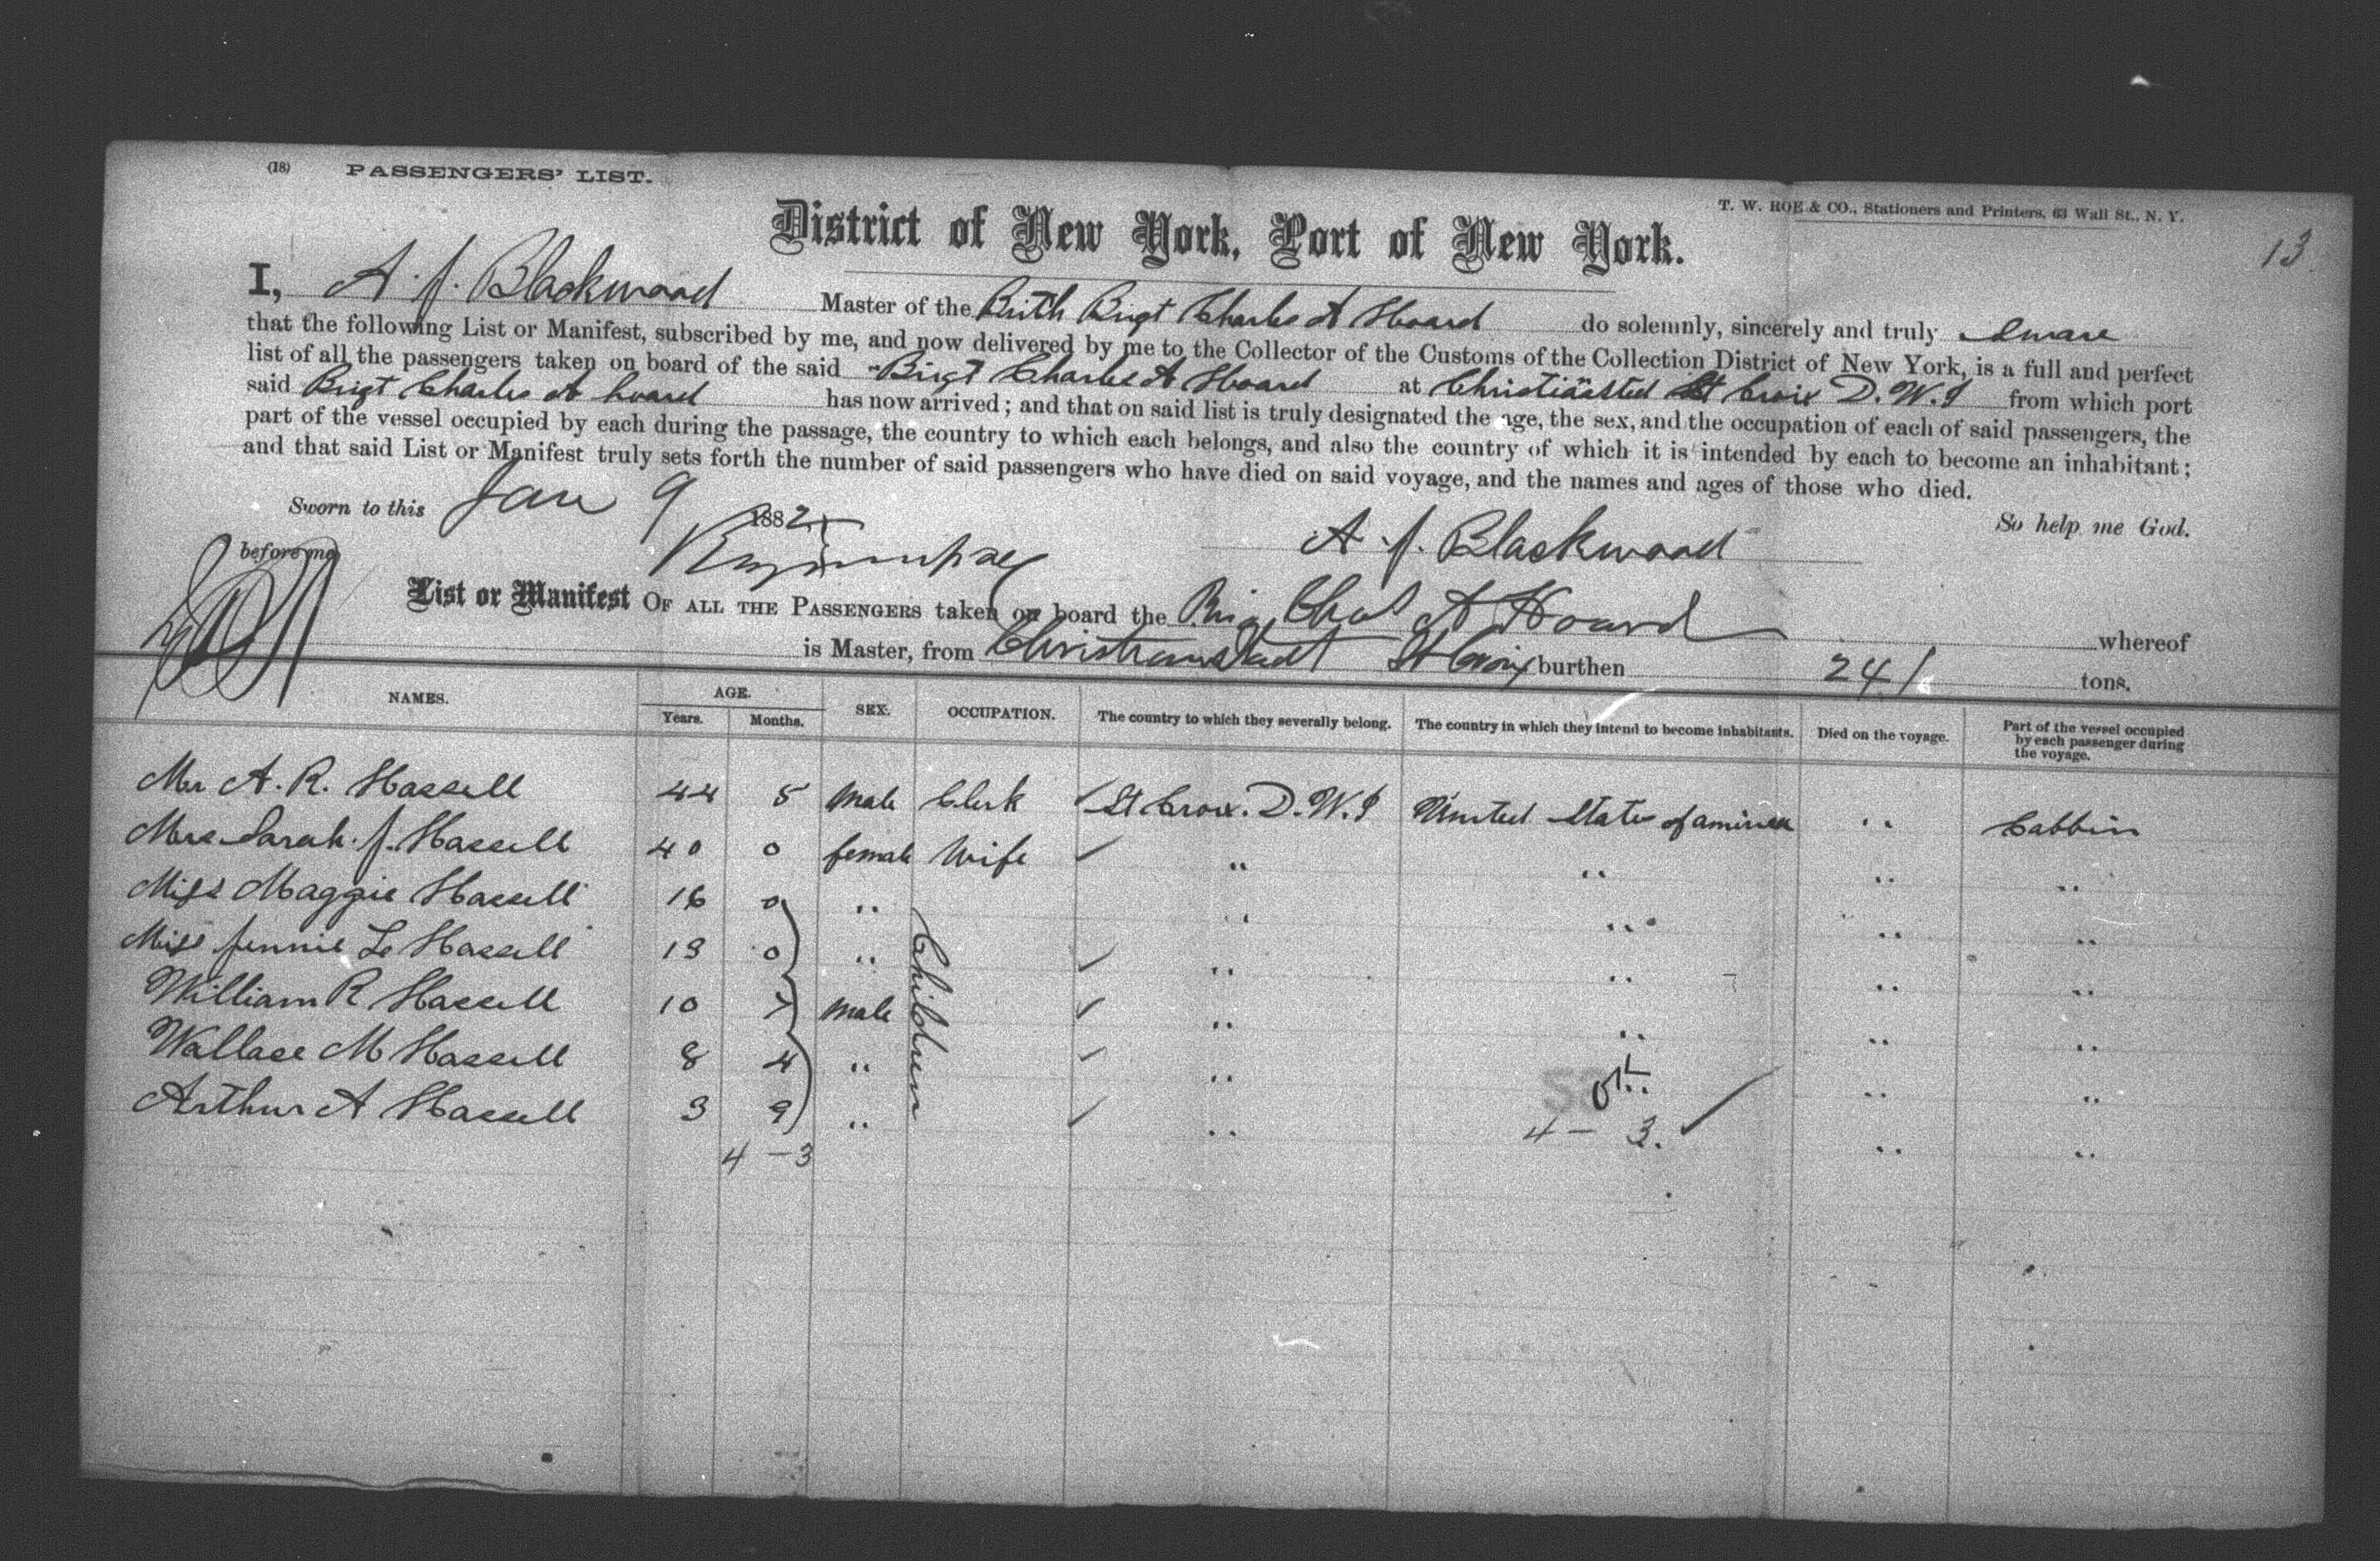 (18) PASSENGERS' LIST.
T. W. ROE & CO., Stationers and Printers, 63 Wall St., N. Y.
13
District of New York, Port of New York.
I, A. J. Blackwood Master of the Brith Brigt Charles A Hoard do solemnly, sincerely and truly Sware
that the following List or Manifest, subscribed by me, and now delivered by me to the Collector of the Customs of the Collection District of New York, is a full and perfect
list of all the passengers taken on board of the said Brigt Charles A Hoard at Christiansted St Croix D. W. I from which port
said Brigt Charles A hoard has now arrived; and that on said list is truly designated the age, the sex, and the occupation of each of said passengers, the
part of the vessel occupied by each during the passage, the country to which each belongs, and also the country of which it is intended by each to become an inhabitant;
and that said List or Manifest truly sets forth the number of said passengers who have died on said voyage, and the names and ages of those who died.
Sworn to this Jan 9 1882 So help me God.
before me A. J. Blackwood
List or Manifest OF ALL THE PASSENGERS taken on board the Brig Chas A Hoard whereof
is Master, from Christianstadt St Croix burthen 241 tons.
NAMES. AGE. Years. Months. SEX. OCCUPATION. The country to which they severally belong. The country in which they intend to become inhabitants. Died on the voyage. Part of the vessel occupied by each passenger during the voyage.
Mr A. R. Hassell 44 5 Male Clerk ✓ St Croix. D. W. I United States of america " Cabbin
Mrs Sarah. J. Hassell 40 0 female Wife ✓ " " " "
Miss Maggie Hassell 16 0 " Children " " " "
Miss Jennie L Hassell 13 0 " ✓ " " " "
William R Hassell 10 7 Male ✓ " " " "
Wallace M Hassell 8 4 " ✓ " " " "
Arthur A Hassell 3 9 " ✓ " " "
4 - 3 4 - 3. ✓